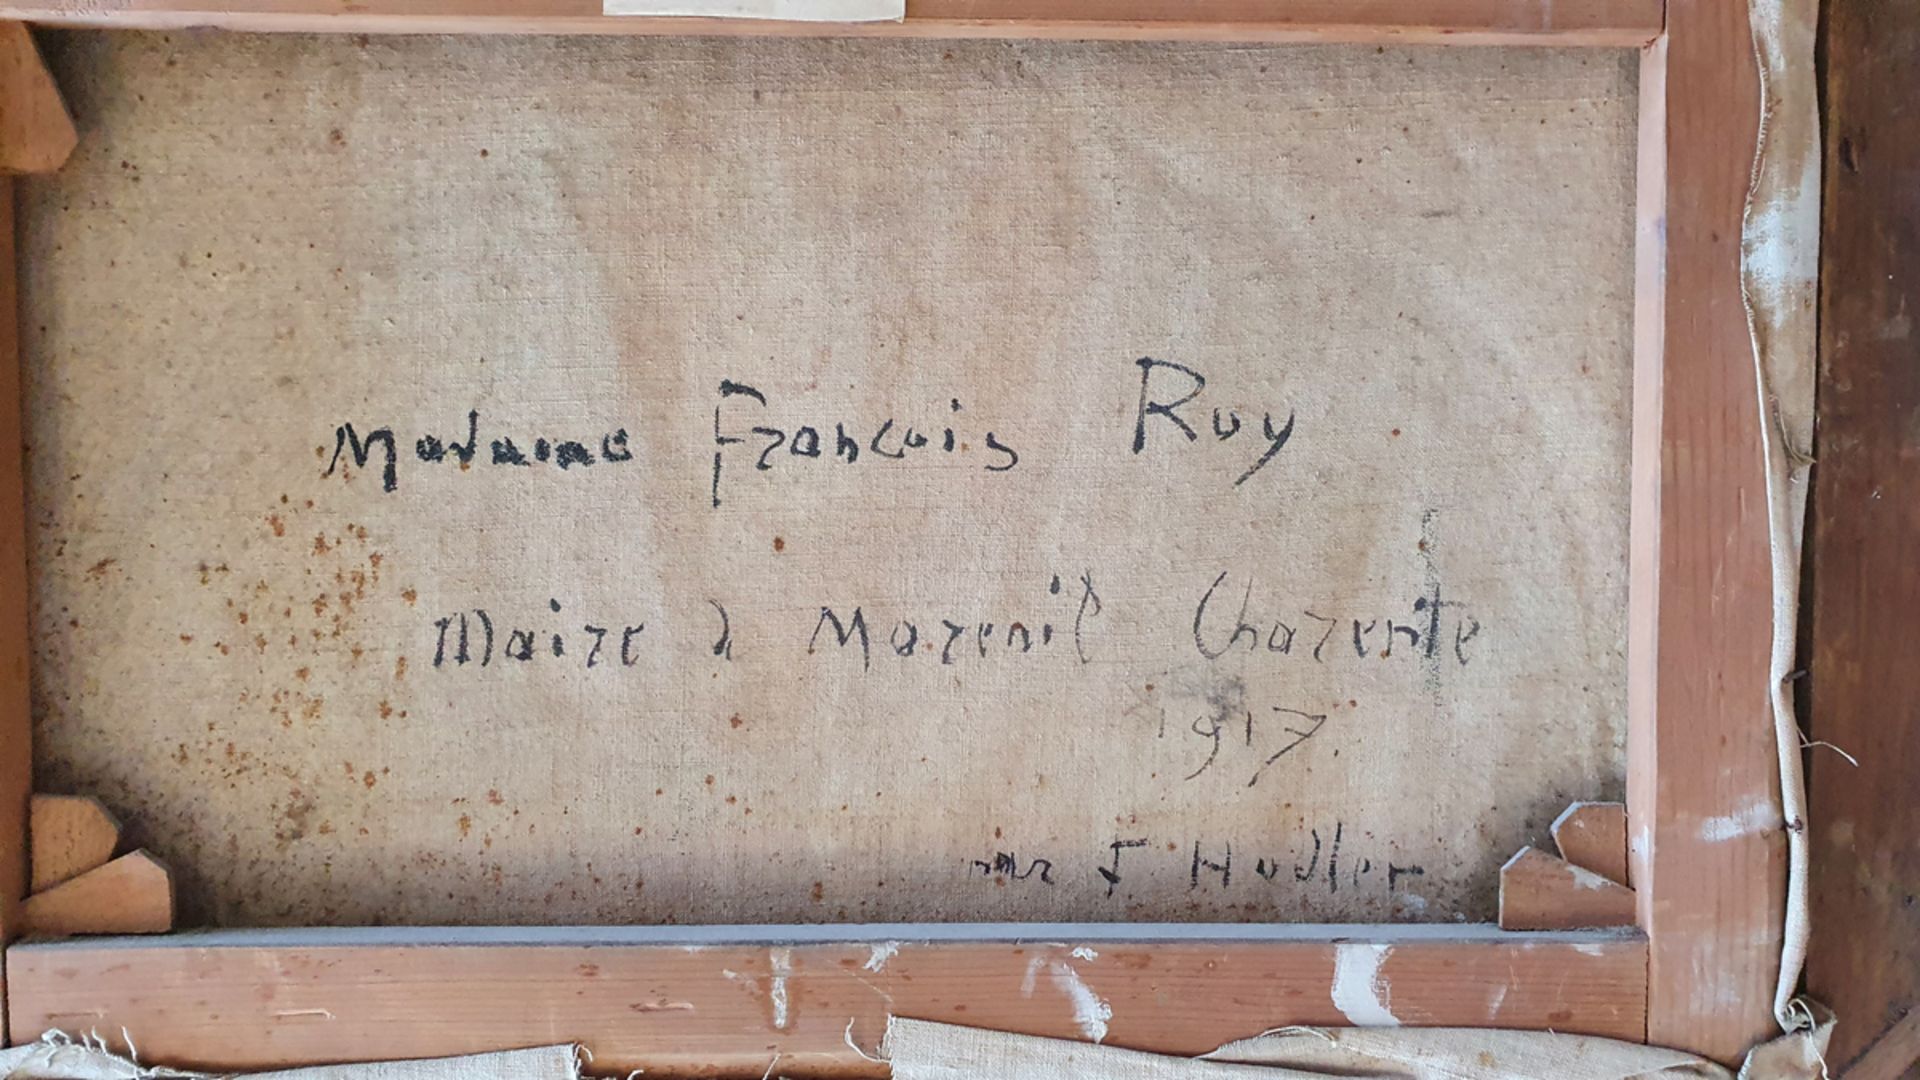 Madame François Roy
Maire à Mareuil Charente
1917.
par F Hodler